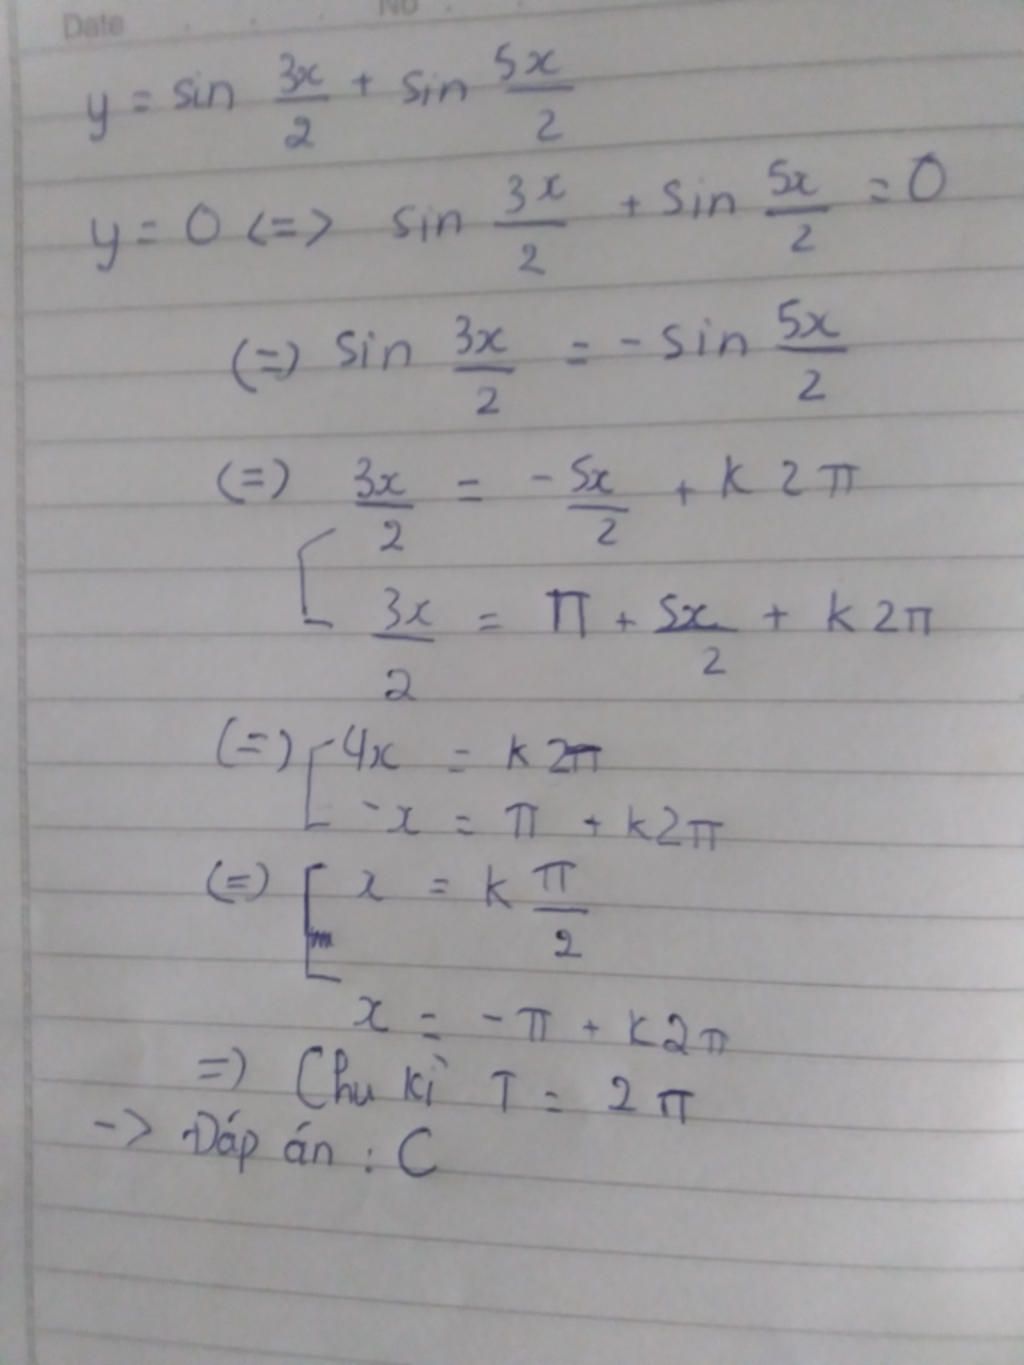 Date No
y = sin 3x/2 + sin 5x/2
y = 0 <=> sin 3x/2 + sin 5x/2 = 0
(=) sin 3x/2 = - sin 5x/2
(=) 3x/2 = -5x/2 + k2π
3x/2 = π + 5x/2 + k2π
(=) 4x = k2π
-x = π + k2π
(=) x = k π/2
x = -π + k2π
=) Chu kì T = 2π
-> Đáp án : C